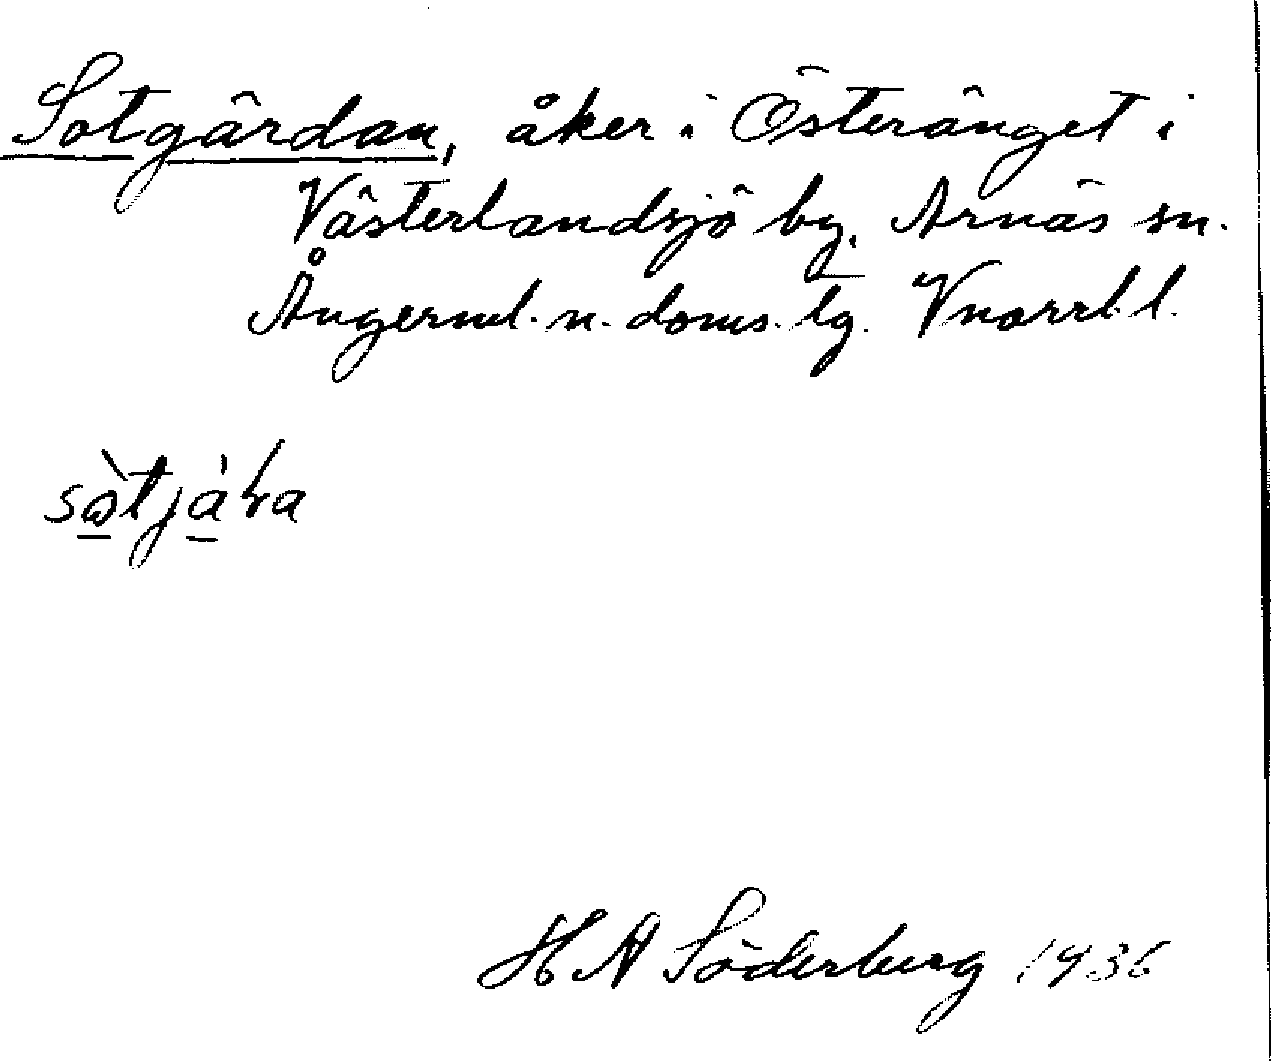 Sotgärdan, åker i Österänget i
Västerlandsjö by. Arnäs sn.
Ångerml. n. doms. lg. Vnorrl. l.
H A Söderberg 1936